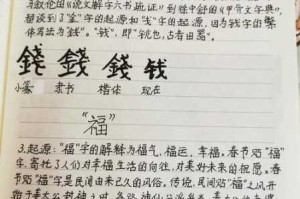 与叙伦组《说文解字六书疏证》到徐中舒的《甲骨文字典》,
替谈到了"金"字的起源和"戋"字的起源,因为钱字的繁
体写法为"錢"。"钱",即"铫也,古者田器。
錢 錢 錢 钱
小篆 隶书 楷体 现在
"福"
3.起源:"福"字的解释为福气,福运,幸福。春节邓"福"
字,寄托了人们对幸福生活的向往,对美好未来的祝愿。春节
邓"福"字是民间由来已久的风俗。传说,民间邓"福"之风开